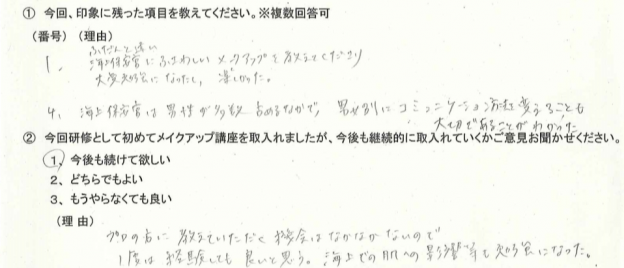 ① 今回、印象に残った項目を教えてください。※複数回答可
(番号)(理由)
ふだんと違い
1、海上保安官にふさわしいメイクアップを教えてくださり
大変勉強になったし、楽しかった。
4、海上保安官は男性が多数占めるなかで、男女別にコミュニケーション方法を変えることも
大切であることがわかった
② 今回研修として初めてメイクアップ講座を取入れましたが、今後も継続的に取入れていくかご意見お聞かせください。
1、今後も続けて欲しい
2、どちらでもよい
3、もうやらなくても良い
(理由)
プロの方に教えていただく機会はなかなかないので
1度は経験しても良いと思う。海上での肌への影響等も勉強になった。